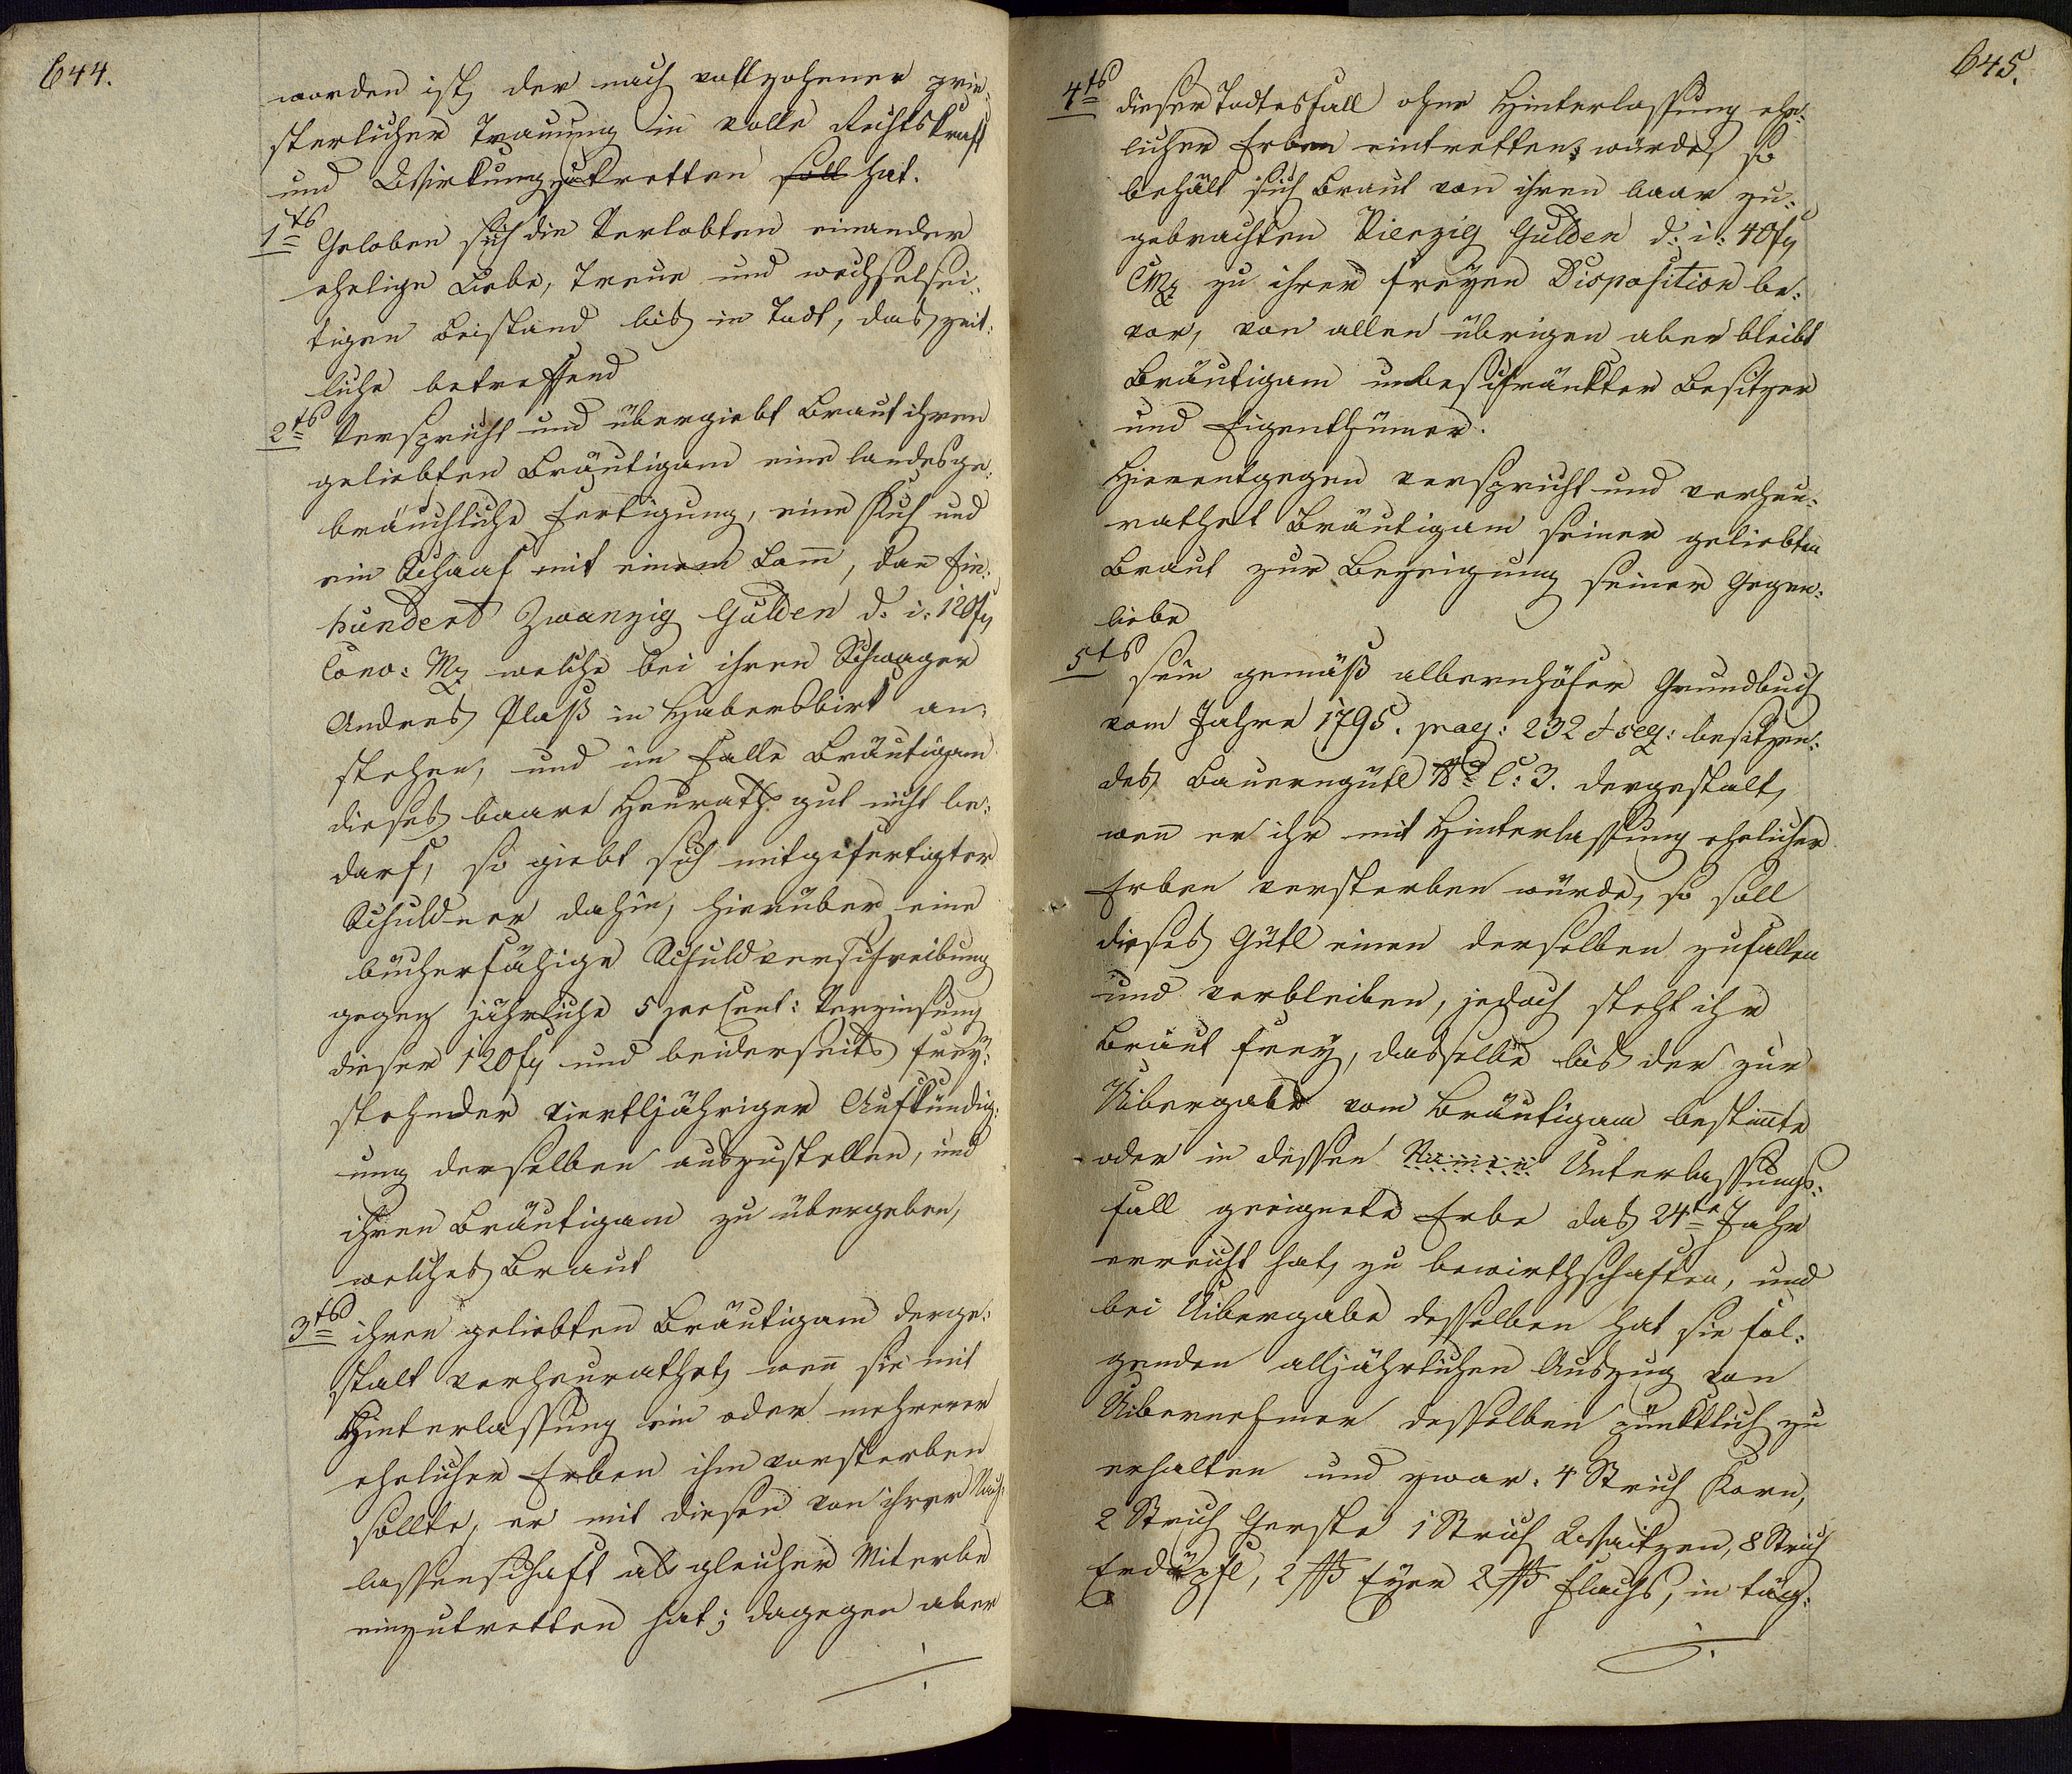 644.
worden ist, der nach vollzohener prie-
sterlicher Trauung in volle Rechtskraft
und Wirkung zu tretten soll hat.
1ts Geloben sich die Verlobten einander
ehelige Liebe, Treue und wechselsei-
tigen Beistand bis in Todt, das zeit-
liche betreffend
2ts Verspricht und übergiebt Braut ihren
geliebten Bräutigam eine landesge-
bräuchliche Fertigung, eine Kuh und
ein Schaaf mit einem Lam̄, dan̄ Ein-
hundert Zwanzig Gulden d: i: 120 fl
Conv: Mz welche bei ihren Schwager
Andres Plaß in Habersbirk an-
stehen, und im Falle Bräutigam
dieses baare Heurathgut nicht be-
darf, so giebt sich mitgefertigter
Schuldner dahin, hierüber eine
bücherfähige Schuldverschreibung
gegen jährliche 5 perCent: Verzinsung
dieser 120 fl und beiderseits frey-
stehender viertljähriger Aufkündig-
ung derselben auszustellen, und
ihren Bräutigam zu übergeben,
welches Braut
3ts ihren geliebten Bräutigam derge-
stalt verheurathet, wen̄ sie mit
Hinterlassung ein oder mehrerer
ehelicher Erben ihm vorsterben
sollte, er mit diesen von ihrer Nach-
lassenschaft als gleicher Miterbe
einzutretten hat; dagegen aber
./.
645.
4ts dieser Todtesfall ohne Hinterlassung ehe-
licher Erben eintretten würde, so
behält sich Braut von ihren baar zu-
gebrachten Vierzig Gulden d: i: 40 fl
CMz zu ihrer freyen Disposition be-
vor, von allen übrigen aber bleibt
Bräutigam unbeschränkter Besitzer
und Eigenthümer.
Hierentgegen verspricht und verheu-
rathet Bräutigam seiner geliebten
Braut zur Bezeigung seiner Gegen-
liebe
5ts sein gemäß albernhöfer Grundbuch
vom Jahre 1795. pag: 232 et seq: besitzen-
des Bauerngütl No C: 3. dergestalt,
wen̄ er ihr mit Hinterlassung ehelicher
Erben versterben würde, so soll
dieses Gütl einen derselben zufallen
und verbleiben, jedoch steht ihr
Braut frey, dasselbe bis der zur
Uibergabe vom Bräutigam bestim̄te
oder in dessen Namen Unterlassungs-
fall geeignete Erbe das 24te Jahr
erreicht hat, zu bewirthschaften, und
bei Uibergabe desselben hat sie fol-
genden alljährlichen Auszug von
Uibernehmer desselben pünktlich zu
erhalten und zwar: 4 Strich Korn,
2 Strich Gerste 1 Strich Waitzen, 8 Strich
Erdäpfl, 2 ß Eyer 2 ℔ Flachs, in täg-
./.